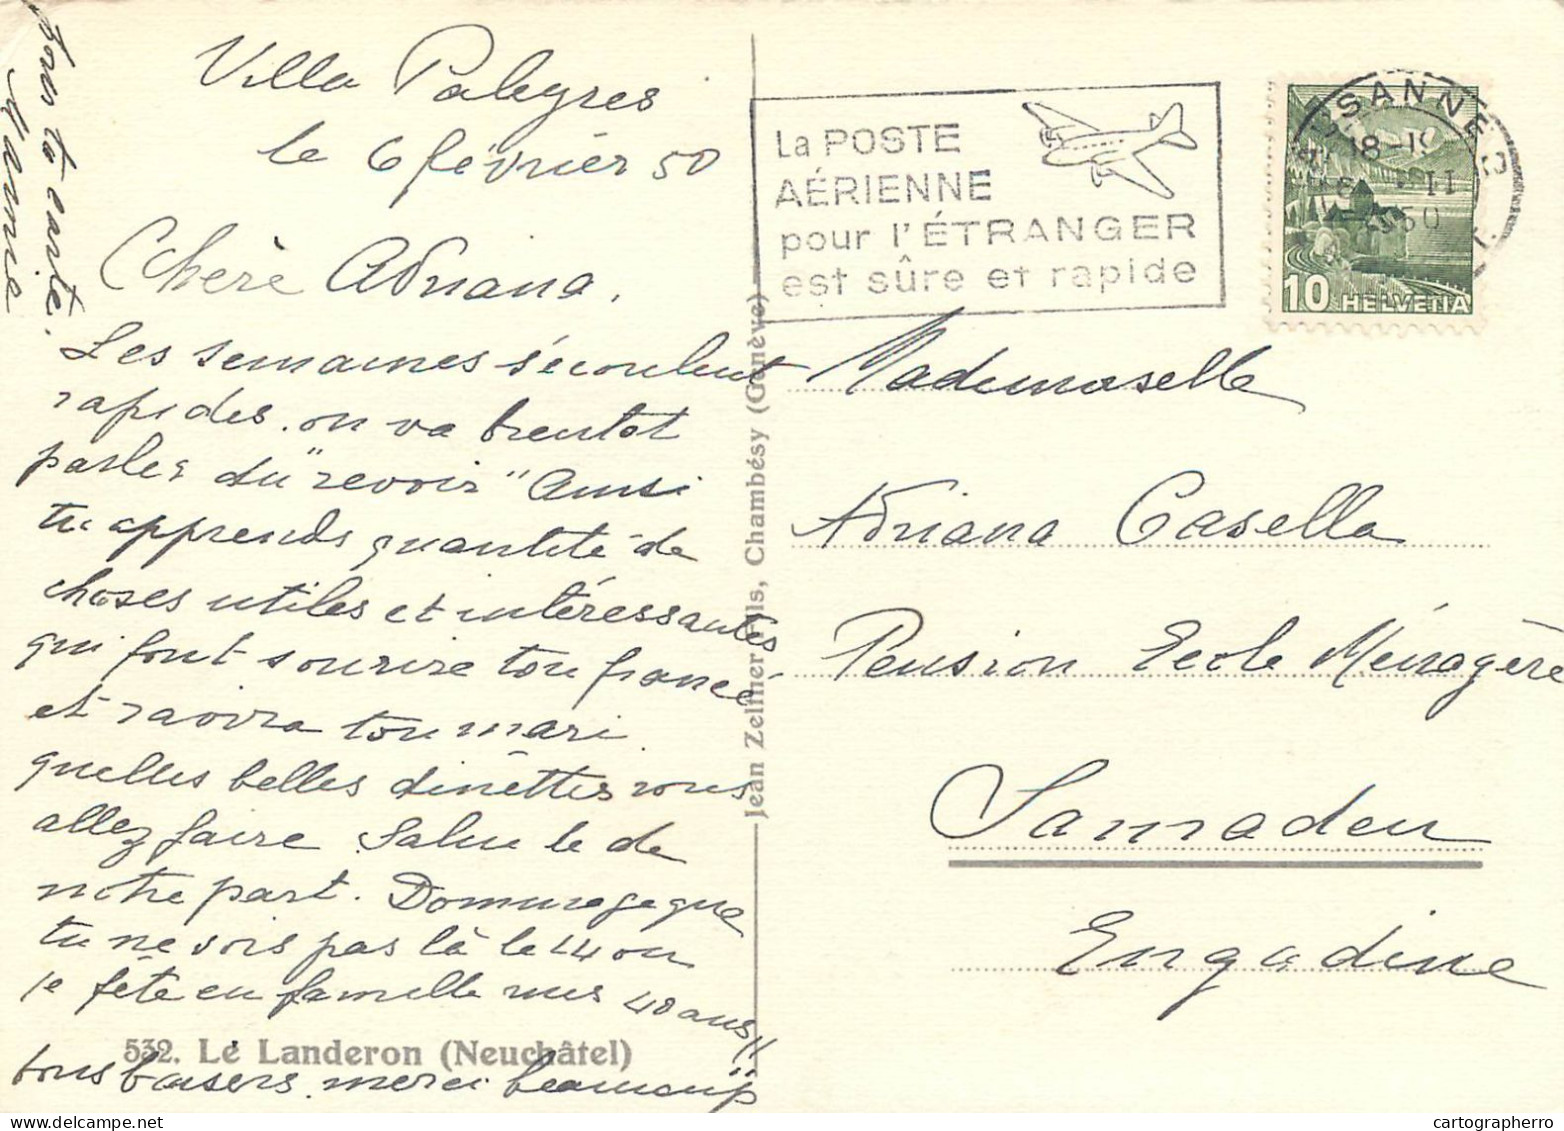 Villa Palegres
le 6 février 50
Chère Adriana,
Les semaines s'écoulent
rapides. on va bientot
parler du "revoir" Ainsi
tu apprends quantité de
choses utiles et intéressantes
qui font sourire ton fiancé
et ravira ton mari
quelles belles dinettes vous
allez faire Salue le de
notre part. Dommage que
tu ne sois pas là le 14 on
fête en famille mes 40 ans!!
bons baisers merci beaucoup
pour ta carte.
532. Le Landeron (Neuchâtel)
Jean Zellner Fils, Chambésy (Genève)
La POSTE
AÉRIENNE
pour l'ÉTRANGER
est sûre et rapide
USANNE
18-19
II
1950
10 HELVETIA
Mademoiselle
Adriana Casella
Pension Ecole Ménagère
Samaden
Engadine
cartographerro